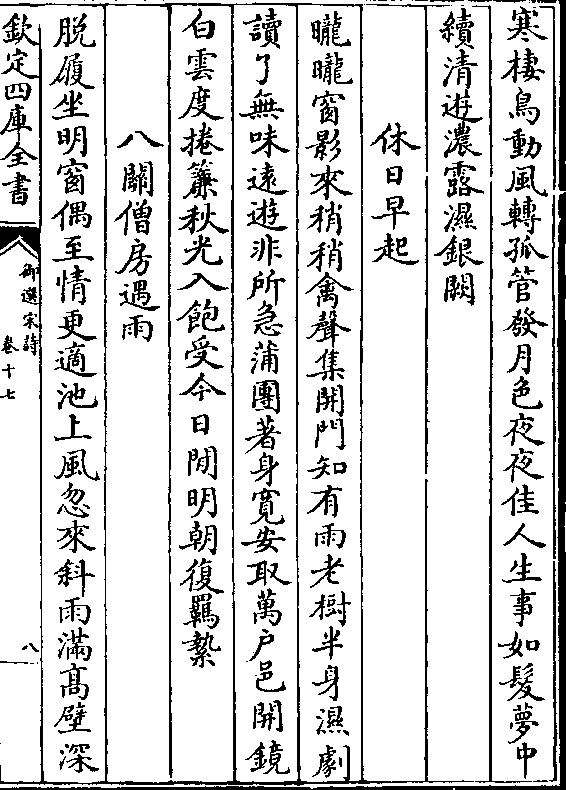 寒棲鳥動風轉孤管發月色夜夜佳人生事如髮夢中
續清逰濃露濕銀闕
休日早起
曨曨窗影來稍稍禽聲集開門知有雨老樹半身濕劇
讀了無味逺遊非所急蒲團著身寛安取萬户邑開鏡
白雲度捲簾秋光入飽受今日閒明朝復羈縶
八關僧房遇雨
脱履坐明窗偶至情更適池上風忽來斜雨滿髙壁深
欽定四庫全書
御選宋詩
卷十七
八